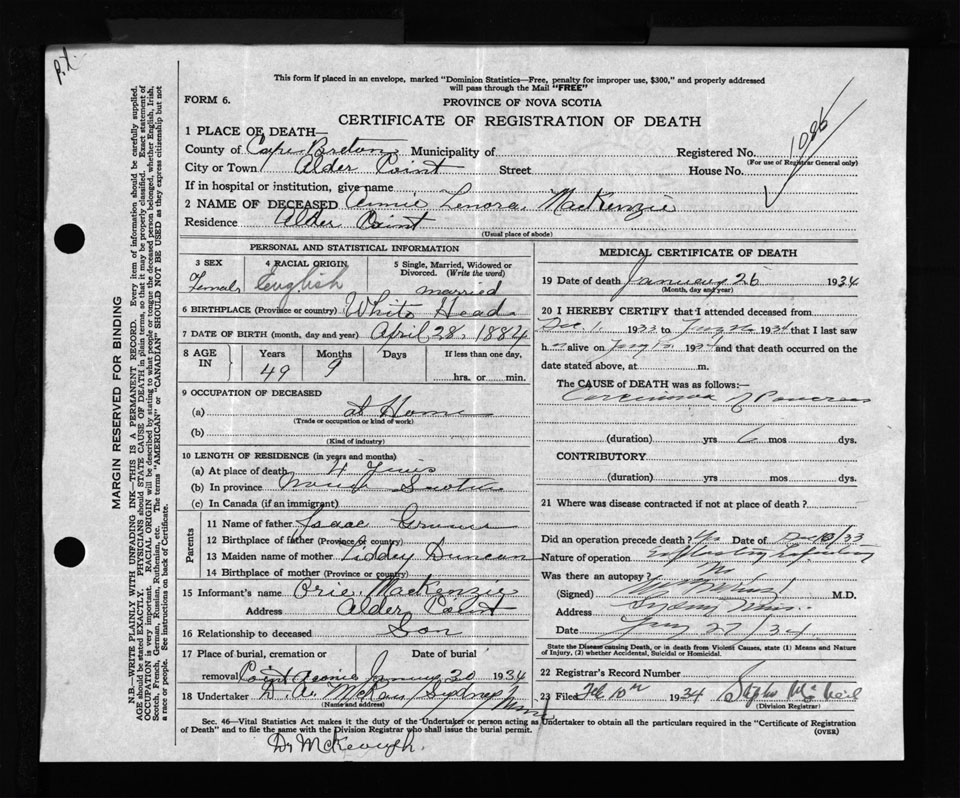 This form if placed in an envelope, marked "Dominion Statistics—Free, penalty for improper use, $300," and properly addressed
will pass through the Mail "FREE"
FORM 6.
PROVINCE OF NOVA SCOTIA
CERTIFICATE OF REGISTRATION OF DEATH
1086
1 PLACE OF DEATH—
County of Cape Breton Municipality of Registered No.
(For use of Registrar General only)
City or Town Alder Point Street House No.
If in hospital or institution, give name
2 NAME OF DECEASED Annie Lenora MacKenzie
Residence Alder Point
(Usual place of abode)
PERSONAL AND STATISTICAL INFORMATION
3 SEX 4 RACIAL ORIGIN 5 Single, Married, Widowed or
Divorced. (Write the word)
Female English married
6 BIRTHPLACE (Province or country) White Head
7 DATE OF BIRTH (month, day and year) April 28, 1884
8 AGE IN Years Months Days If less than one day,
49 9
hrs. or min.
9 OCCUPATION OF DECEASED
(a) at Home
(Trade or occupation or kind of work)
(b)
(Kind of industry)
10 LENGTH OF RESIDENCE (in years and months)
(a) At place of death 4 years
(b) In province Nova Scotia
(c) In Canada (if an immigrant)
Parents
11 Name of father Isaac
12 Birthplace of father (Province or country)
13 Maiden name of mother Duncan
14 Birthplace of mother (Province or country)
15 Informant's name Orie MacKenzie
Address Alder Point
16 Relationship to deceased Son
17 Place of burial, cremation or Date of burial
removal Point Aconi January 30 1934
18 Undertaker D. A. Sydney Mines
(Name and address)
MEDICAL CERTIFICATE OF DEATH
19 Date of death January 26 1934
(Month, day and year)
20 I HEREBY CERTIFY that I attended deceased from
Dec 1, 1933 to 1934 that I last saw
h alive on 1934 and that death occurred on the
date stated above, at m.
The CAUSE of DEATH was as follows:—
Carcinoma of Pancreas
(duration) yrs 6 mos dys.
CONTRIBUTORY
(duration) yrs mos dys.
21 Where was disease contracted if not at place of death?
Did an operation precede death? Yes Date of Dec /33
Nature of operation Exploratory
Was there an autopsy? No
(Signed) M.D.
Address Sydney Mines
Date Jany 27/34
State the Disease causing Death, or in death from Violent Causes, state (1) Means and Nature
of Injury, (2) whether Accidental, Suicidal or Homicidal.
22 Registrar's Record Number
23 Filed Feb 10th 1934
(Division Registrar)
Sec. 46—Vital Statistics Act makes it the duty of the Undertaker or person acting as Undertaker to obtain all the particulars required in the "Certificate of Registration
of Death" and to file the same with the Division Registrar who shall issue the burial permit. (OVER)
Dr McKeough.
MARGIN RESERVED FOR BINDING
N.B.—WRITE PLAINLY WITH UNFADING INK—THIS IS A PERMANENT RECORD. Every item of information should be carefully supplied.
AGE should be stated EXACTLY. PHYSICIANS should STATE CAUSE OF DEATH in plain terms, so that it may be properly classified. Exact statement of
OCCUPATION is very important. RACIAL ORIGIN will be described by stating to what people or tongue the deceased person belonged, whether English, Irish,
Scotch, French, German, Russian, Ruthenian, etc. The terms "AMERICAN" or "CANADIAN" SHOULD NOT BE USED as they express citizenship but not
a race or people. See instructions on back of Certificate.